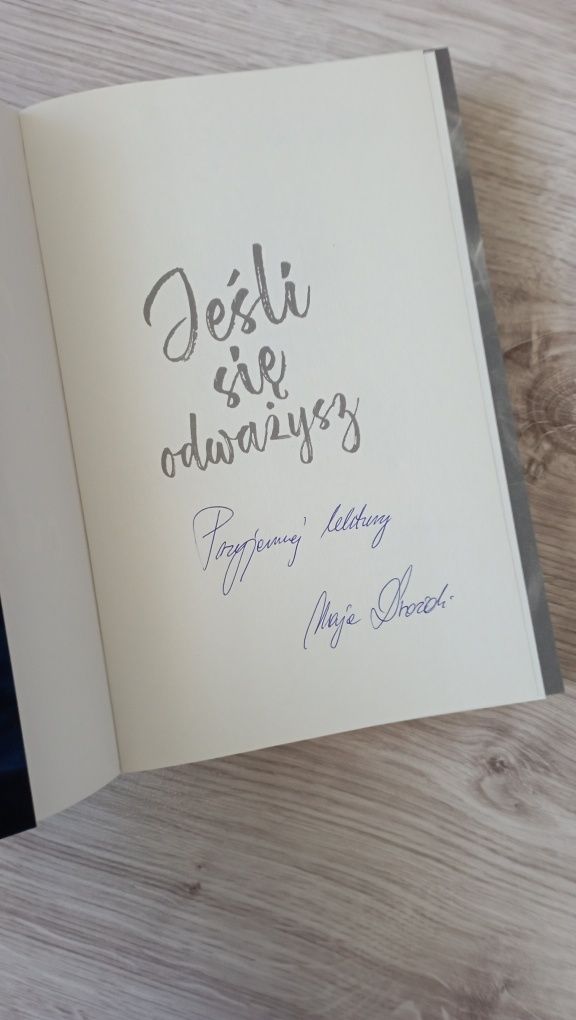 Jeśli
się
odważysz
Przyjemnej lektury
Maja Drozdi